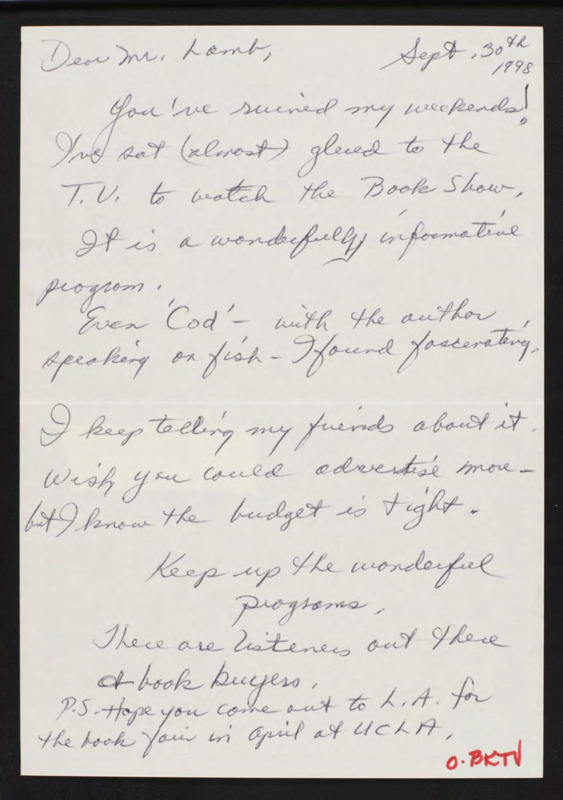 Dear Mr. Lamb,
Sept. 30th
1998
You've ruined my weekends!
I've sat (almost) glued to the
T.V. to watch the Book Show.
It is a wonderfully informative
program.
Even 'Cod' - with the author
speaking on fish - I found fascerating.
I keep telling my friends about it.
Wish you could advertise more -
but I know the budget is tight.
Keep up the wonderful
programs.
There are listeners out there
& book buyers.
P.S. Hope you come out to L.A. for
the book fair in April at UCLA.
O-BKTV